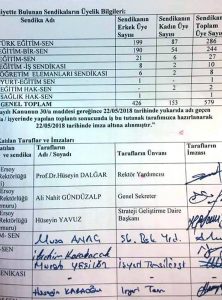 iyette Bulunan Sendikaların Üyelik Bilgileri:
Sendika Adı Sendikanın Erkek Üye Sayısı Sendikanın Kadın Üye Sayısı Sendikanın Toplam Üye Sayısı
TÜRK EĞİTİM-SEN 199 87 286
EĞİTİM-BİR-SEN 190 54 244
EĞİTİM-SEN 21 6 27
EĞİTİM -İŞ SENDİKASI 8 2 10
ÖĞRETİM ELEMANLARI SENDİKASI 4 2
YURT-EĞİTİM-SEN 1
ANADOLU EĞİTİM SEN 1
SAĞLIK HAK-SEN 1
GENEL TOPLAM 426 153 579
sayılı Kanunun 30/a maddesi gereğince 22/05/2018 tarihinde yukarıda adı geçen
/ işyerinde yapılan toplantı sonucunda iş bu tutanak tarafımızca hazırlanarak
22/05/2018 tarihinde imza altına alınmıştır."
atılan Taraflar ve İmzaları
Tarafların Adı / Soyadı Tarafların Ünvanı Tarafların İmzası
Ersoy Rektörlüğü Prof.Dr.Hüseyin DALĞAR Rektör Yardımcısı
Ersoy Rektörlüğü Ali Nahit GÜNDÜZALP Genel Sekreter
Ersoy Rektörlüğü Hüseyin YAVUZ Strateji Geliştirme Daire Başkanı
Musa ANAÇ
İbrahim Karabacak
Murat YEŞİLEN İşyeri Temsilcisi
Hüseyin KARAOĞLU